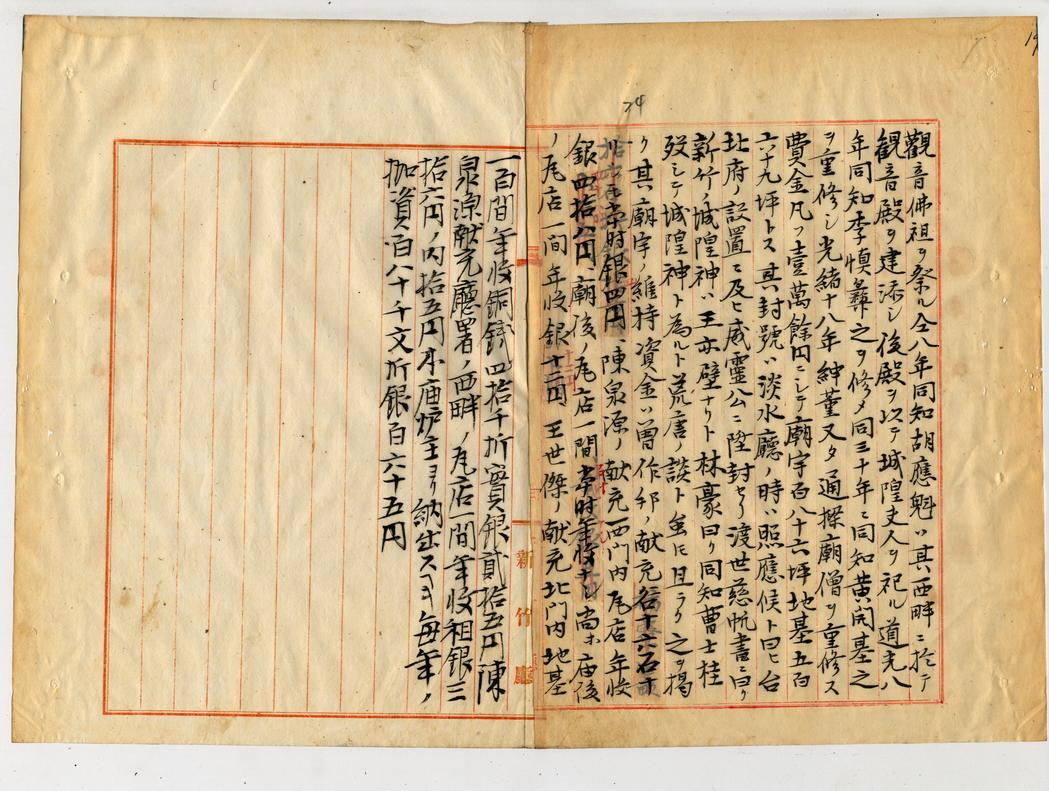 24
觀音佛祖ヲ祭ル仝八年同知胡應魁ハ其西畔ニ於テ
観音殿ヲ建添シ後殿ヲ以テ城隍夫人ヲ祀ル道光八
年同知李慎彝之ヲ修メ同三十年ニ同知黄開基之
ヲ重修シ光緒十八年紳董又タ通探廟僧ヲ重修ス
費金凡ソ壹萬餘円ニシテ廟宇百八十六坪地基五百
六十九坪トス其封號ハ淡水廳ノ時ハ照應候ト曰ヒ台
北府ノ設置ニ及ヒ威霊公ニ陞封セリ渡世慈帆書ニ曰ク
新竹ノ城隍神ハ王亦壁ナリト林豪曰ク同知曹士桂
歿シテ城隍神ト為ルト荒唐ノ談ト虽モ且ラク之ヲ掲
ク其廟宇ノ維持資金ハ曽作邦ノ献充谷十六石
時銀四円、陳泉源ノ献充西門内瓦店年收
銀四拾八円、廟後ノ瓦店一間年收 尚ホ庙後
ノ瓦店一間年收銀十二円王世傑ノ献充北門内地基
一百間年收銅銭四拾千折實銀貳拾五円陳
泉源献充廳署ノ西畔ノ瓦店一間年收租銀三
拾六円ノ内拾五円本庙炉主ヨリ納出スヘキ毎年ノ
捐資百八十千文折銀百六十五円
新竹廳